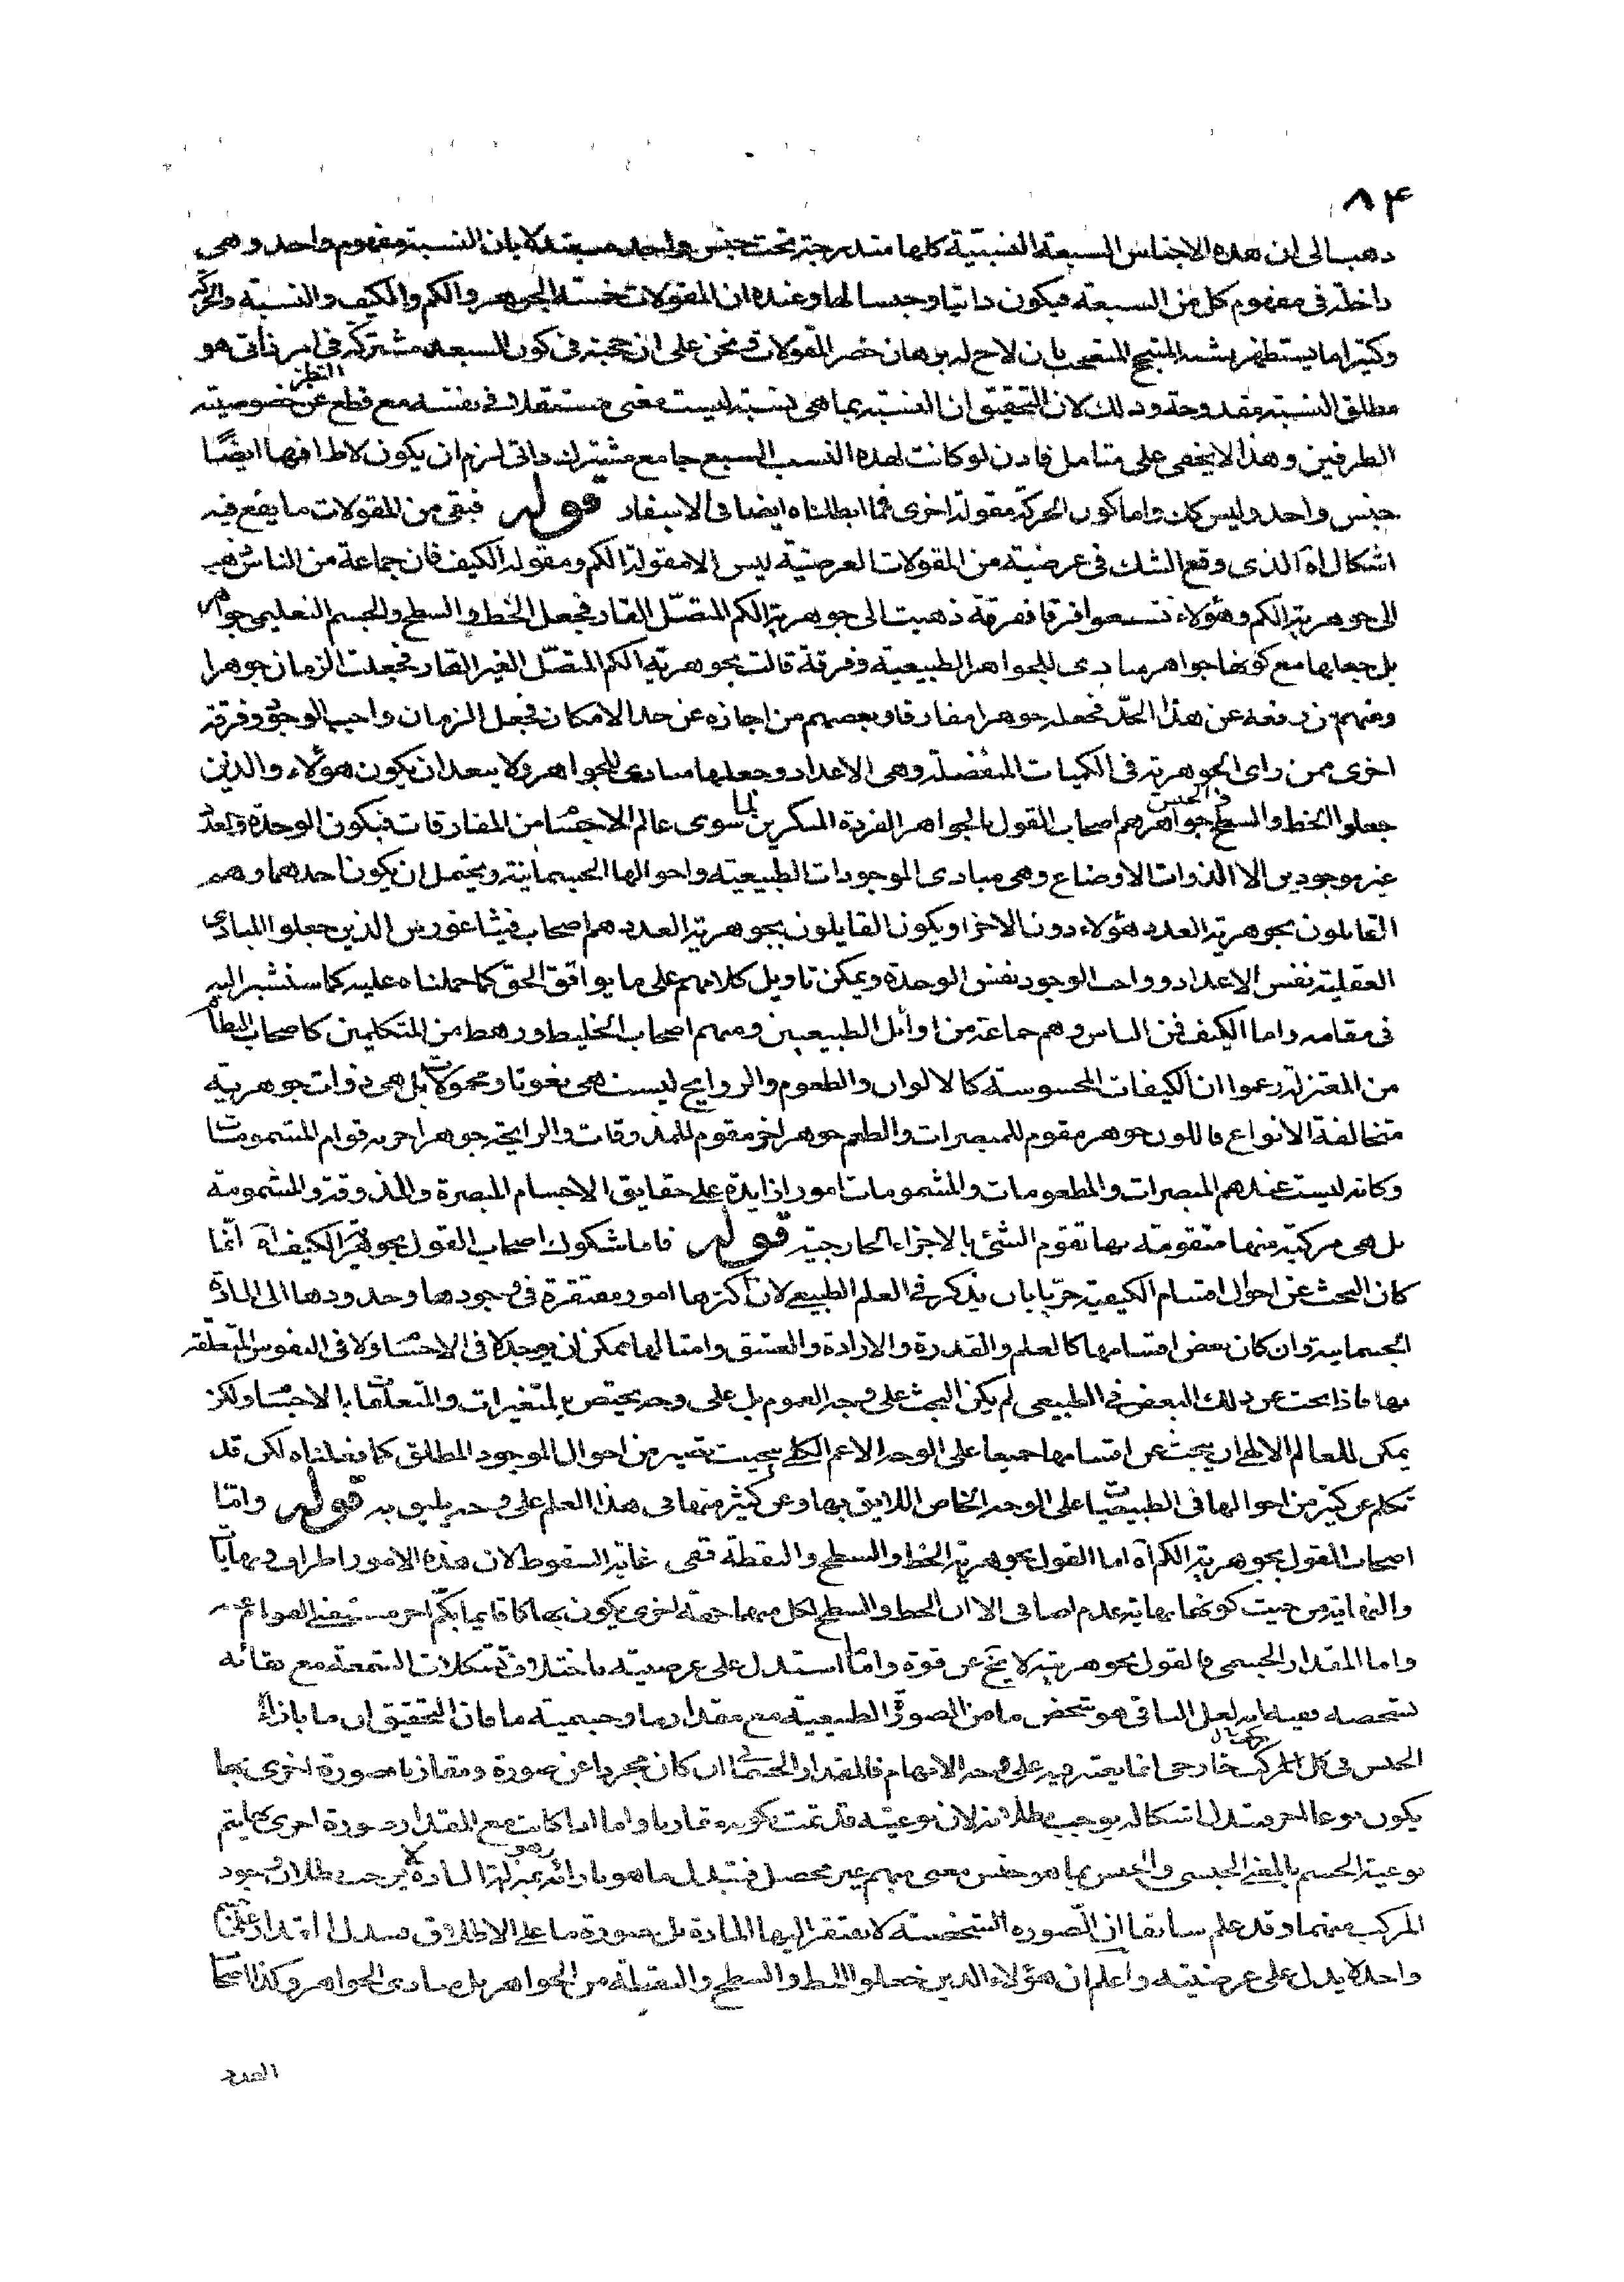 ٨۴
ذهب الى ان هذه الاجناس السبعة النسبية كلها مندرجة تحت جنس واحد مستدلا بان النسبة مفهوم واحد وهى
داخلة فى مفهوم كل من السبعة فيكون ذاتيا وجنسا لها وعنده ان المقولات خمسة الجوهر والكم والكيف والنسبة والحركة
وكثيرا ما يستظهر بان لاح له برهان حصر المقولات ونحن على ان حجته فى كون السبعة مشتركة فى امر ذاتى هو
مطلق النسبة مقدوحة وذلك لان التحقيق ان النسبة بما هى نسبة ليست معنى مستقلا فى نفسه مع قطع النظر عن خصوصية
الطرفين وهذا لا يخفى على متامل فاذن لو كانت لهذه النسب السبع جامع مشترك ذاتى لزم ان يكون لاطرافها ايضًا
جنس واحد وليس كك واما كون الحركة مقولة اخرى فما ابطلناه ايضا فى الاسفار قوله فبقى من المقولات ما يقع فيه
اشكال اه الذى وقع الشك فى عرضيته من المقولات العرضية ليس الا مقولة الكم ومقولة الكيف فان جماعة من الناس ذهبت
الى جوهرية الكم وهؤلاء تشعبوا فرقا ففرقة ذهبت الى جوهرية الكم المتصل القار فجعل الخط والسطح والجسم التعليمى جواهر
بل جعلها مع كونها جواهر مبادى للجواهر الطبيعية وفرقة قالت بجوهرية الكم المتصل الغير القار فجعلت الزمان جوهرا
ومنهم من رفعه عن هذا الحد فجعله جوهرا مفارقا وبعضهم من اجازه عن حد الامكان فجعل الزمان واجب الوجود وفرقة
اخرى ممن راى الجوهرية فى الكميات المنفصلة وهى الاعداد وجعلها مبادى للجواهر ولا يبعد ان يكون هؤلاء والذين
جعلوا الخط والسطح والجسم جواهر هم اصحاب القول بالجواهر الفردة المنكرين لما سوى عالم الاجسام من المفارقات فيكون الوحدة والعدد
غير موجودين الا الذوات الاوضاع وهى مبادى الموجودات الطبيعية واحوالها الجسمانية ويحتمل ان يكون احدهما وهم
القائلون بجوهرية العدد هؤلاء دون الاخر او يكون القايلون بجوهرية العدد هم اصحاب فيثاغورس الذين جعلوا المبادى
العقلية نفس الاعداد وواجب الوجود نفس الوحدة ويمكن تاويل كلامهم على ما يوافق الحق كما حملناه عليه كما سنشير اليه
فى مقامه واما الكيف فمن الناس وهم جماعة من اوائل الطبيعيين ومنهم اصحاب الخليط ورهط من المتكلمين كاصحاب النظام
من المعتزلة زعموا ان الكيفيات المحسوسة كالالوان والطعوم والروايح ليست هى نعوتا ومحمولات بل هى ذوات جوهرية
متخالفة الانواع فاللون جوهر مقوم للمبصرات والطعم جوهر اخر مقوم للمذوقات والرايحة جوهر اخر به قوام المشمومات
وكانه ليست عندهم المبصرات والمطعومات والمشمومات امورا زايدة على حقايق الاجسام المبصرة والمذوقة والمشمومة
بل هى مركبة منها متقومة بها تقوم الشئ بالاجزاء الخارجية قوله فاما شكوك اصحاب القول بجوهرية الكيف اه انما
كان البحث عن احوال اقسام الكيفية حريا بان يذكر فى العلم الطبيعى لان اكثرها امور مفتقرة فى وجودها وحدودها الى المادة
الجسمانية وان كان بعض اقسامها كالعلم والقدرة والارادة والعشق وامثالها يمكن ان يوجد لا فى الاجسام ولا فى النفوس المتعلقة
بها فاذا بحث عن ذلك البعض فى الطبيعى لم يكن البحث على وجه العموم بل على وجه يختص بالمتغيرات والمتعلقات بالاجسام ولكن
يمكن للعالم الالهى ان يبحث عن اقسامها جميعا على الوجه الاعم الكلى بحيث يصير من احوال الموجود المطلق كما فعلناه لكن قد
تكلم عن كثير من احوالها فى الطبيعيات على الوجه الخاص اللايق بها وعن كثير منها فى هذا العلم على وجه يليق به قوله وامّا
اصحاب القول بجوهرية الكم اه اما القول بجوهرية الخط والسطح والنقطة ففى غاية السقوط لان هذه الامور اطراف ونهايات
والنهاية من حيث كونها نهاية عدم اضافى الا ان الخط والسطح لكل منهما جهة اخرى يكون بها كما قايما بكم اخر
واما المقدار الجسمى فالقول بجوهريته لا يخ عن قوة واما ما استدل على عرضيته باختلاف تشكلات الشمعة مع بقائه
بشخصه ففيه انه لعل الباقى هو شخص ما من الصورة الطبيعية مع مقدار ما وجسمية ما فان التحقيق ان ما بازاء
الجنس فى كل مركب خارجى انما يعتبر فيه على وجه الابهام فالمقدار الجسمانى ان كان مجردا عن صورة ومقارنا صورة اخرى بها
يكون نوعا اخر فتبدل اشكاله يوجب بطلانه لان نوعيته قد تمت بكونه مقدارا واما اذا كانت مع المقدار صورة اخرى بها يتم
نوعية الجسم بالمعنى الجنسى والجنس بما هو جنس معنى مبهم غير محصل فتبدل ما هو بازائه وهو بمنزلة المادة لا يوجب بطلان وجود
المركب منهما وقد علم سابقا ان الصورة الشخصية لا يفتقر اليها المادة بل صورة ما على الاطلاق فتبدل المقدار على
واحد لا يدل على عرضيته واعلم ان هؤلاء الذين جعلوا الخط والسطح والنقطة من الجواهر بل مبادى الجواهر وكذا اصحاب
العدد